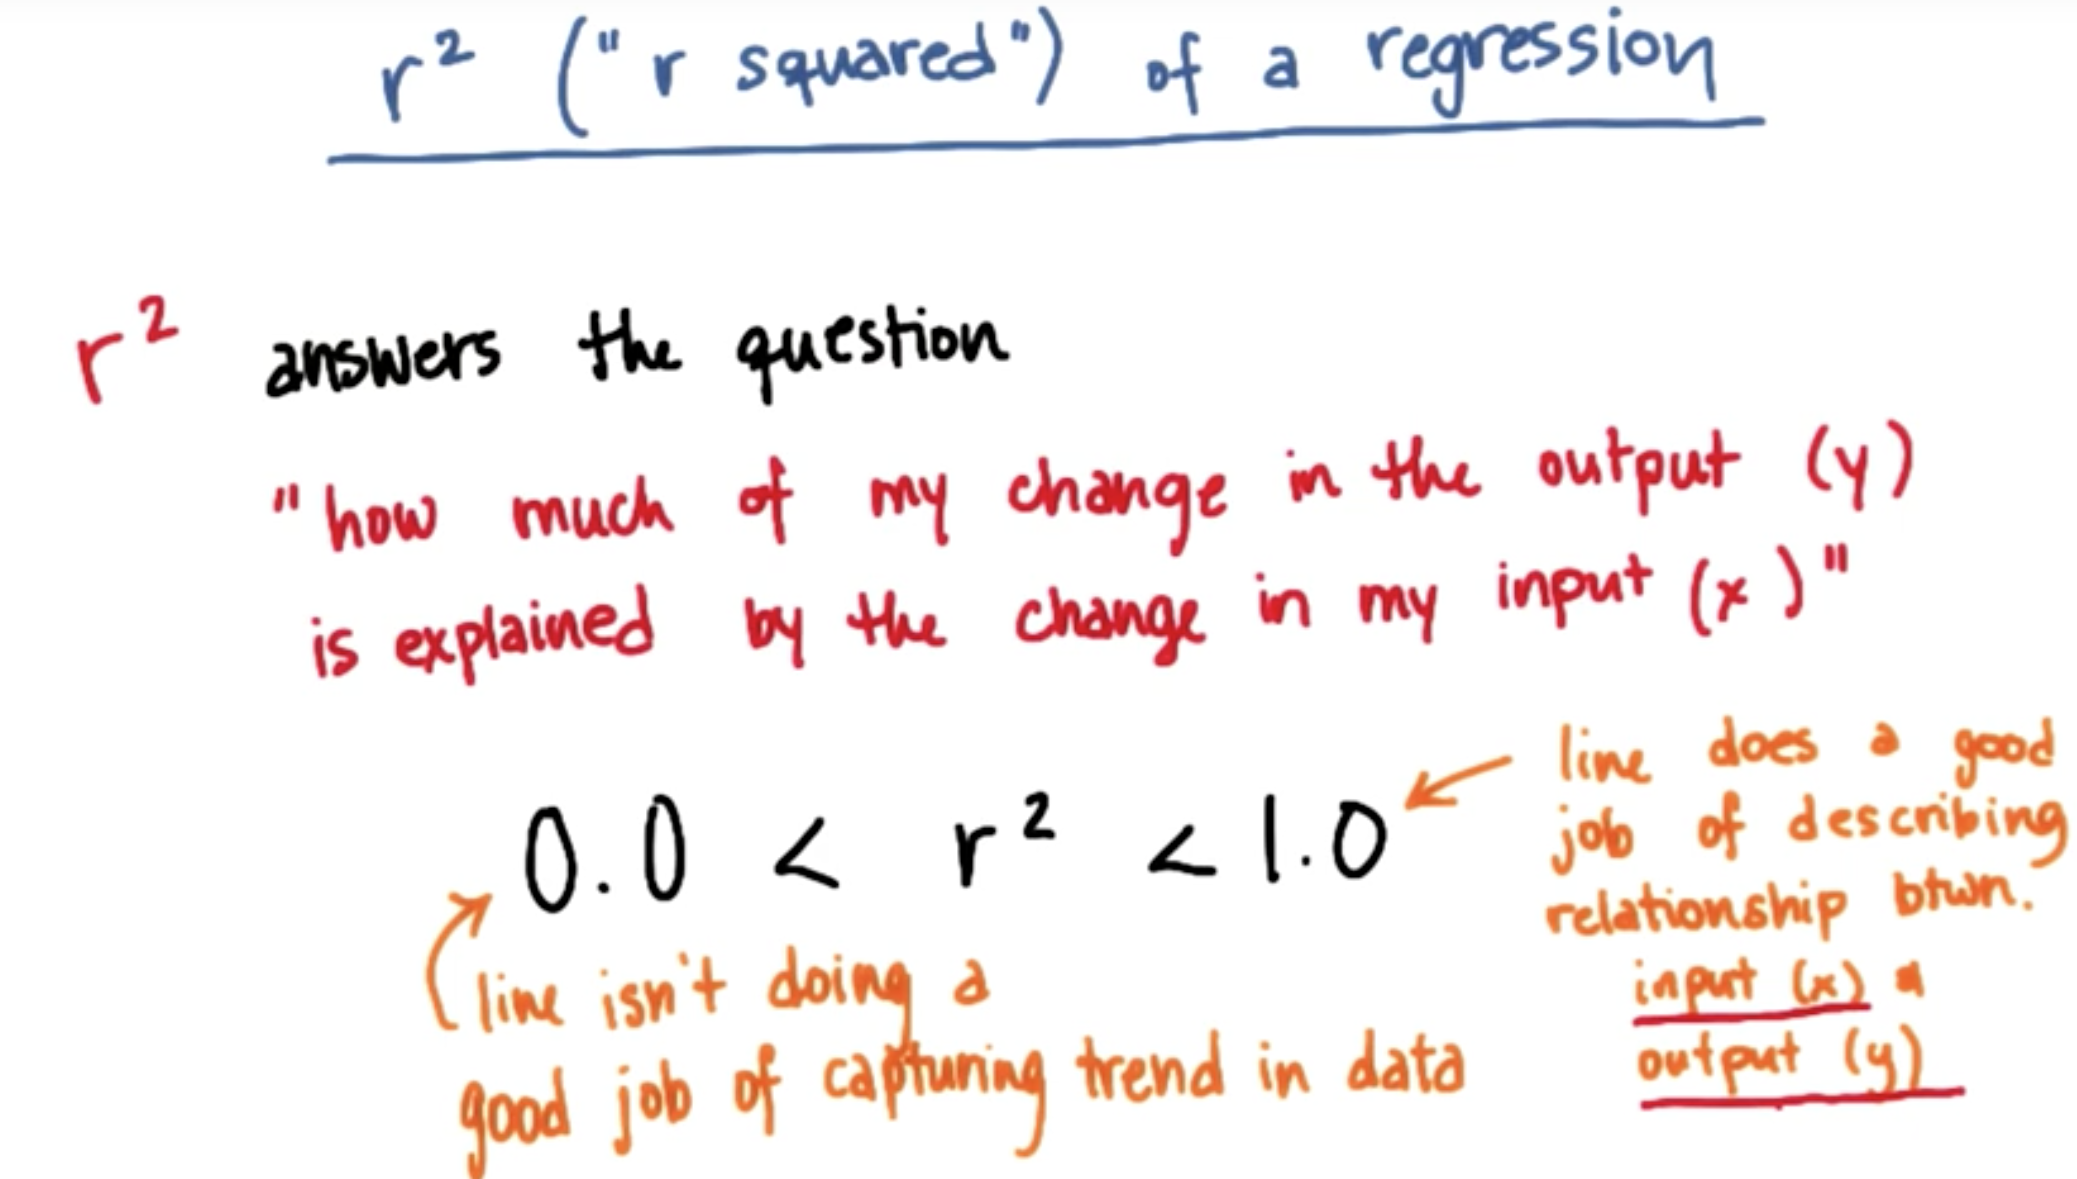 r² ("r squared") of a regression
r² answers the question
"how much of my change in the output (y)
is explained by the change in my input (x)"
0.0 < r² < 1.0
line does a good
job of describing
relationship btwn.
input (x) &
output (y)
line isn't doing a
good job of capturing trend in data